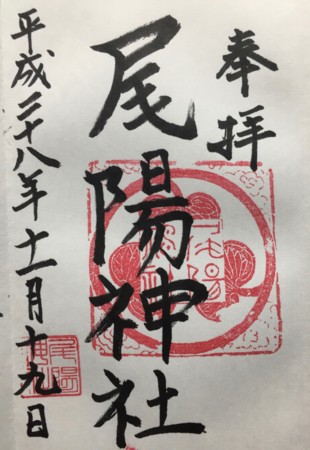 奉拝
尾陽神社
平成二十八年十一月十九日